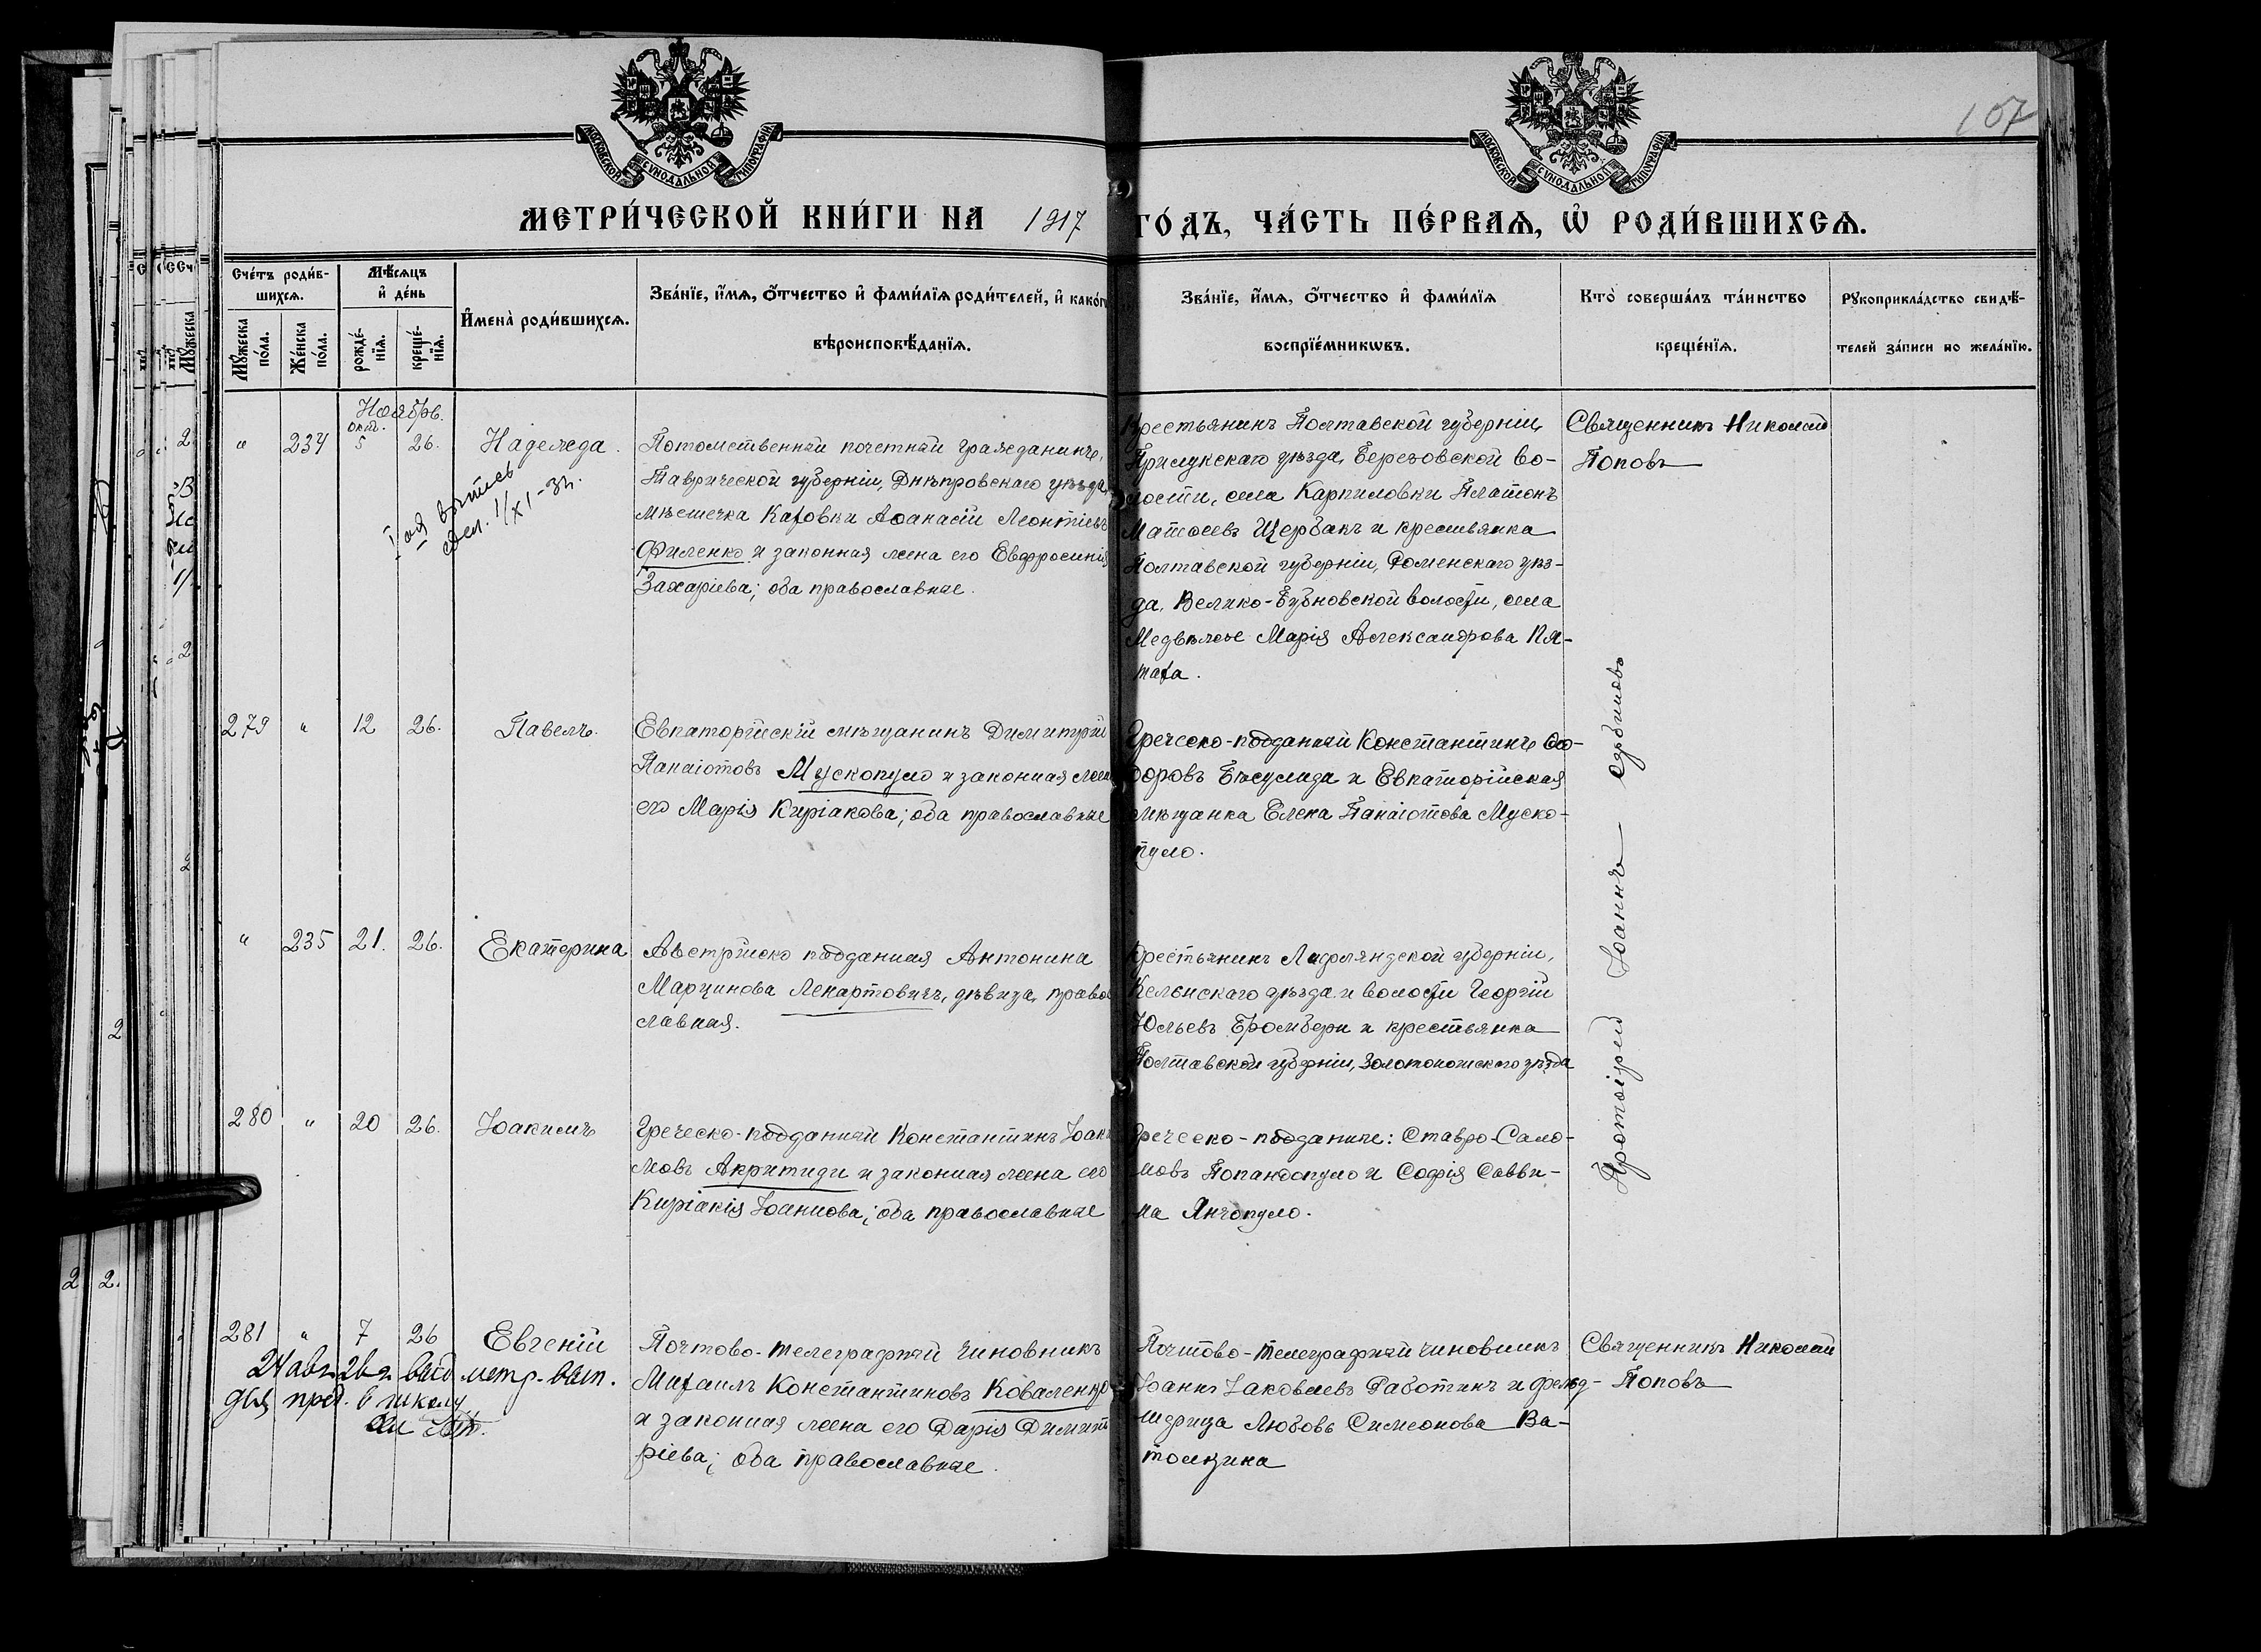 МОСКОВСКОЙ СѴНОДАЛЬНОЙ ТИПОГРАФІИ
МОСКОВСКОЙ СѴНОДАЛЬНОЙ ТИПОГРАФІИ
107
МЕТРИ́ЧЕСКОЙ КНИ́ГИ НА 1917 ГО́ДЪ, ЧА́СТЬ ПЕ́РВАѦ, Ѡ РОДИ́ВШИХСѦ.
Сче́тъ роди́в-
шихсѧ.
Мꙋ́жеска по́ла.
Же́нска по́ла.
Мѣ́сѧцъ
и҆ де́нь
рожде́-
нїѧ.
креще́-
нїѧ.
И҆мена̀ роди́вшихсѧ.
Зва́нїе, и҆́мѧ, ѻ҆́тчество и҆ фами́лїѧ роди́телей, и҆ како́гѡ
вѣроисповѣ́данїѧ.
Зва́нїе, и҆́мѧ, ѻ҆́тчество и҆ фами́лїѧ
воспрїе́мникѡвъ.
Кто̀ соверша́лъ та́инство
креще́нїѧ.
Рꙋкоприкла́дство свидѣ́-
телей за́писи по жела́нїю.
Ноябрь.
окт.
" 234 5 26. Надежда.
I ая выпись
Потомственный почетный гражданинъ,
Таврической губерніи, Днѣпровскаго уѣзда,
мѣстечка Каховки Аѳанасій Леонтіевъ
Филенко и законная жена его Евфросинія
Захаріева; оба православные.
Крестьянинъ Полтавской губерніи,
Прилукскаго уѣзда, Березовской во-
лости, села Карпиловки Платонъ
Матѳеевъ Щербакъ и крестьянка
Полтавской губерніи, Роменскаго уѣз-
да, Велико-Бубновской волости, села
Медвѣжье Марія Александрова Пя-
таха.
Священникъ Николай
Поповъ
279 " 12 26. Павелъ.
Евпаторійскій мѣщанинъ Димитрій
Панаіотовъ Мускопуло и законная жена
его Марія Киріакова; оба православные
Греческо-подданный Константинъ Ѳео-
доровъ и Евпаторійская
мѣщанка Елена Панаіотова Муско-
пуло.
Протоіерей Іоаннъ Сербиновъ
" 235 21. 26. Екатерина
Австрійско подданная Антонина
Марцинова Ленартовичъ, дѣвица, правос
славная.
Крестьянинъ Лифляндской губерніи,
уѣзда и волости Георгій
Юльевъ Бромберг и крестьянка
Полтавской губерніи, Золотоношскаго уѣзда
280 " 20 26. Іоакимъ
Греческо-подданный Константинъ Іоаки
мовъ Акритиди и законная жена его
Киріакія Іоаннова; оба православные
Греческо-подданные: Ставро Сало-
мовъ Попандопуло и Софія Савви-
на Янчопуло.
281 " 7 26 Евгеній
24 авг 26 г. выд метр. вып.
для пред. в школу
Почтово-телеграфный чиновникъ
Михаилъ Константиновъ Коваленко
и законная жена его Дарія Димит
ріева; оба православные.
Почтово-телеграфный чиновникъ
Іоаннъ Іаковлевъ Работинъ и фельд-
шерица Любовь Симеонова Ва-
Священникъ Николай
Поповъ